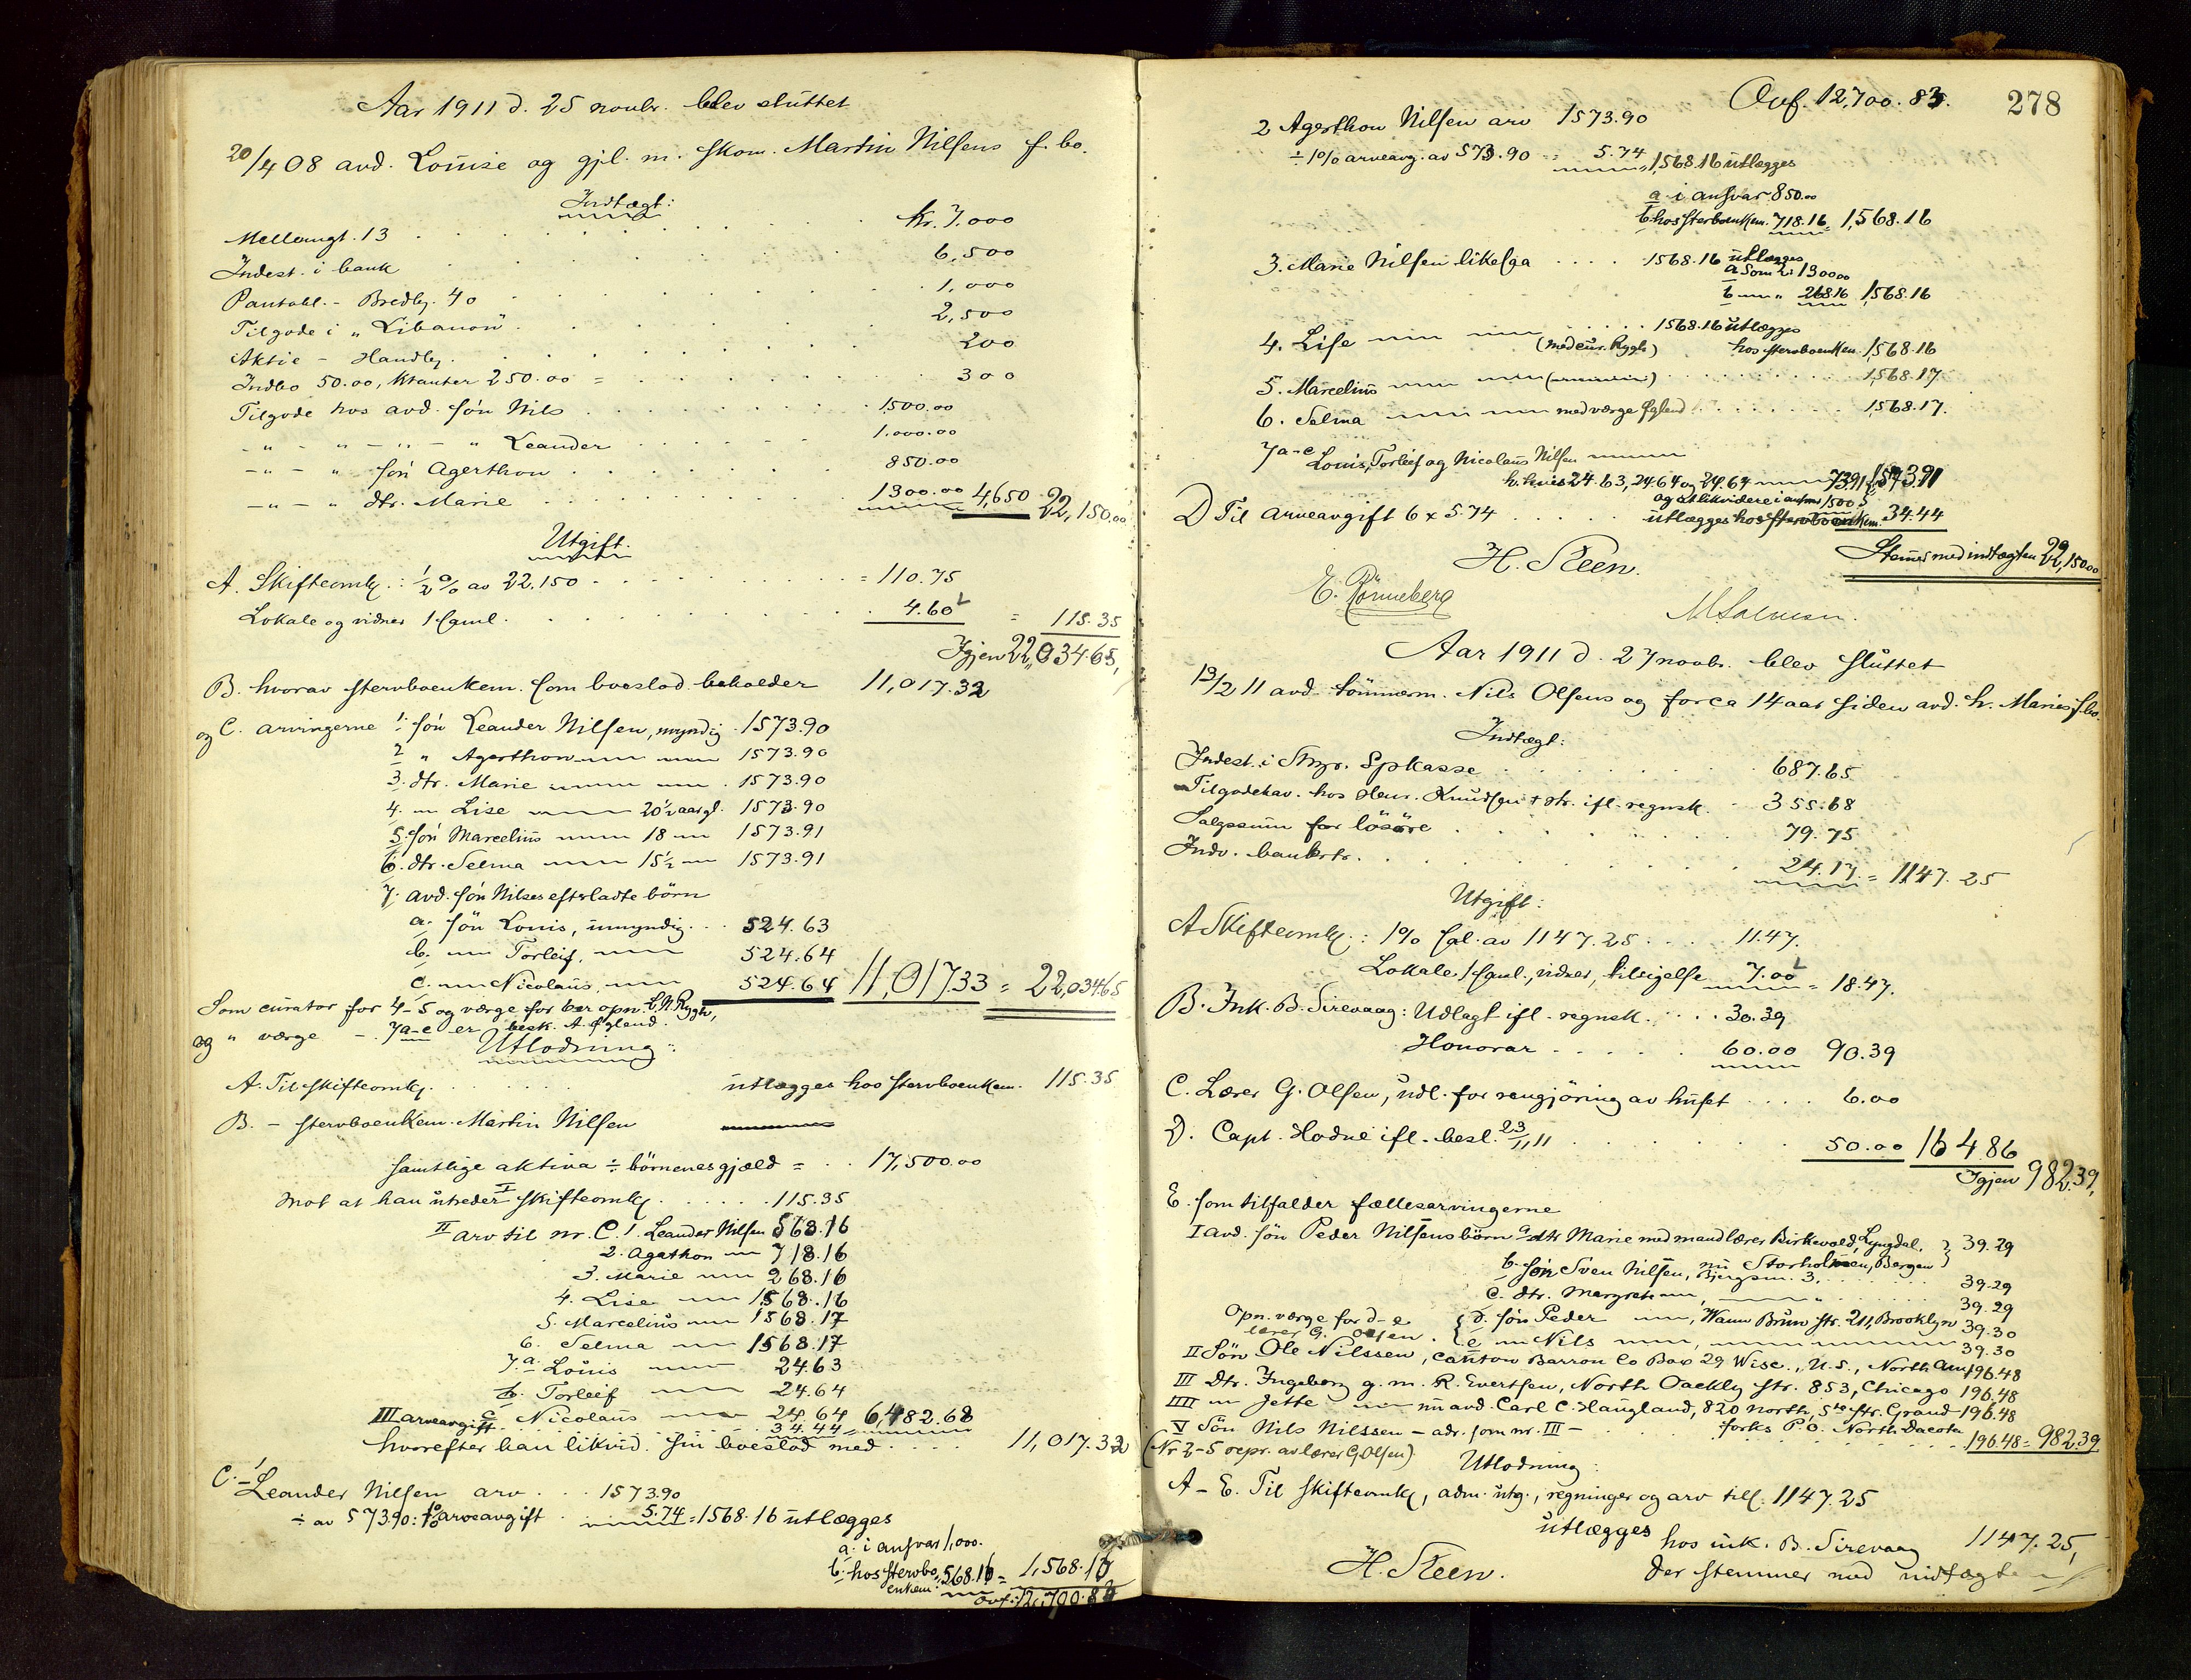 Aar 1911 d. 25 novbr. blev sluttet
20/4 08 avd. Louise og gjl. m. skom. Martin Nilsens f. bo.
Indtægt:
Mellemgt. 13 . . . Kr. 7.000
Indest. i bank . . . 6,500
Pantobl. - Bredbg. 40 . . . 1,000
Tilgode i „Libanon" . . . 2,500
Aktie - Handbg. . . . 200
Indbo 50.00, Ktanter 250.00 = . . . 300
Tilgode hos avd. søn Nils . . . 1500.00
" - " - " - " Leander . . . 1.000.00
-"- " søn Agerthon . . . 850.00
-"- " dtr. Marie . . . 1300.00 4,650 22,150.00
Utgift.
A. Skifteomk.: 1/2 % av 22,150 . . . = 110.75
Lokale og vidner 1 saml. . . . 4.60 = 115.35
Igjen 22,034.65,
B. hvorav stervboenkem. som boeslod beholder 11,017.32
og C. arvingerne 1. søn Leander Nilsen, myndig . 1573.90
2 " Agerthon 1573.90
3. dtr. Marie 1573.90
4. Lise 20 1/2 aar gl. 1573.90
5. søn Marcelius 18 1573.91
6. dtr. Selma 15 1/2 1573.91
7. avd. søn Nilses efterladte børn
a. søn Louis, umyndig . . 524.63
b. Torleif, 524.64
c. Nicolaus, 524.64 11,017.33 = 22,034.65
Som curator for 4-5 og værge for 6 er opn. Rygh,
og " værge - 7a-c er besk. A. Øglend.
Utlodning:
A. Til skifteomk. . . . utlægges hos stervboenkem. 115.35
B. - stervboenkem. Martin Nilsen
samtlige aktiva ÷ børnenes gjæld = . . 17,500.00
mot at han utreder I skifteomk. . . . 115.35
II arv til nr. C. 1. Leander Nilsen 568.16
2. Agathon 718.16
3. Marie 268.16
4. Lise 1568.16
5. Marcelius 1568.17
6. Selma 1568.17
7.a. Louis 24.63
b. Torleif 24.64
c. Nicolaus 24.64
III arveavgift . . . 34.44 = 6,482.68
hvorefter han likvid. sin boeslod med . . . 11,017.32
C. 1 Leander Nilsen arv . . . 1573.90
÷ av 573.90: 1% arveavgift . 5.74 = 1568.16 utlægges
a. i ansvar 1,000.
b. hos stervbo 568.16 = 1,568.16
enkem.
Ovf. 12,700.83
Ovf. 12,700.83. 278
2 Agerthon Nilsen arv 1573.90
÷ 1% arveavg. av 573.90 = 5.74 = 1,568.16 utlægges
a. i ansvar 850.00
b. hos stervboenkem. 718.16 = 1,568.16
3. Marie Nilsen likesaa . . . . 1568.16 utlægges
a som 2: 1300.00
b " 268.16 1,568.16
4. Lise . . . . . 1568.16 utlægges
(med cur. Rygh) hos stervboenkem. 1,568.16
5. Marcelius . . . 1,568.17
6. Selma med værge Øglend . . . 1,568.17.
7a-c Louis, Torleif og Nicolaus Nilsen
h. hvis 24.63, 24.64 og 24.64 73.91 1,573.91
og at likvidere i ansvar 1500
D Til arveavgift 6 x 5.74 . . . utlægges hos stervboenkem. 34.44
H. Steen. Stemmer med indtægten 22,150.00
E. Rønneberg
M Salvesen.
Aar 1911 d. 27 novbr. blev sluttet
13/2 11 avd. tømmerm. Nils Olsens og for ca 14 aar siden avd. h. Maries f. bo.
Indtægt:
Indest. i Spkasse . . . 687.65
Tilgodehav. hos Henr. Knudsen + str. ifl. regnsk. . 355.68
Salgssum for løsøre . . . 79.75
Indv. bankrtr. . . . 24.17 = 1147.25
Utgift:
A Skifteomk.: 1% sal. av 1147.25 . . . . 11.47.
Lokale 1 saml., vidner, tilsigelse 7.00 = 18.47.
B. Ink. B. Sirevaag: Udlagt ifl. regnsk. . . . 30.39
Honorar . . . . . 60.00 90.39
C. Lærer G. Olsen, udl. for rengjøring av huset . . . . 6.00
D. Capt. Hodne ifl. besl. 23/11 11 . . . 50.00 164.86
Igjen 982.39,
E. som tilfalder fællesarvingerne
I avd. søn Peder Nilsens børn a dtr Marie med mand lærer Birkevold, Lyngdal, 39.29
b. søn Sven Nilsen, nu Storholmen, Bergen 39.29
c. dtr. Margrete 39.29
Opn. værge for d-e d. søn Peder 211, Brooklyn 39.30
lærer G. Olsen. e Nils 39.30
II Søn Ole Nilssen, Canton Barron Co Box 29 Wisc., U.S., North Am. 196.48
III Dtr. Ingeborg g. m. R. Evertsen, North Oackly str. 853, Chicago 196.48
IIII Jette nu avd. Carl C. Haugland, 820 North, 5te str. Grand 196.48
V Søn Nils Nilssen - adr. som nr. III - forks P.O. North Dacota
196.48 = 982.39
(Nr 2-5 repr. av lærer G. Olsen) Utlodning:
A - E. Til skifteomk., adm. utg., regninger og arv till. 1147.25
utlægges hos ink. B. Sirevaag 1147.25,
H. Steen. der stemmer med indtægten